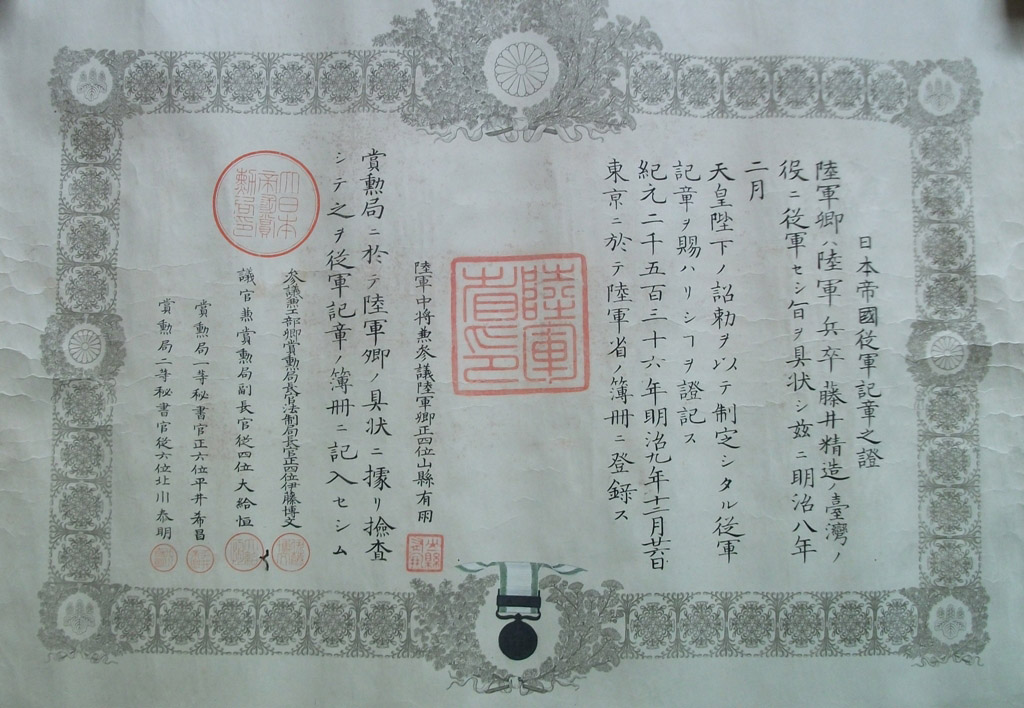 日本帝國從軍記章之證
陸軍卿ハ陸軍兵卒藤井精造ノ臺灣ノ
役ニ從軍セシ旨ヲ具状シ茲ニ明治八年
二月
天皇陛下ノ詔勅ヲ以テ制定シタル從軍
記章ヲ賜ハリシヿヲ證記ス
紀元二千五百三十六年明治九年十二月廿六日
東京ニ於テ陸軍省ノ簿册ニ登録ス
陸軍省印
陸軍中將兼参議陸軍卿正四位山縣有朋
賞勲局ニ於テ陸軍卿ノ具状ニ據リ撿査
シテ之ヲ從軍記章ノ簿册ニ記入セシム
大日本帝國賞勲局印
参議兼工部卿賞勲局長官法制局長官正四位伊藤博文
議官兼賞勲局副長官從四位大給恒
賞勲局一等秘書官正六位平井希昌
賞勲局二等秘書官從六位北川泰明